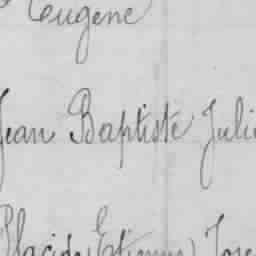 Eugene
Jean Baptiste Juli
Placide Etienne Jose